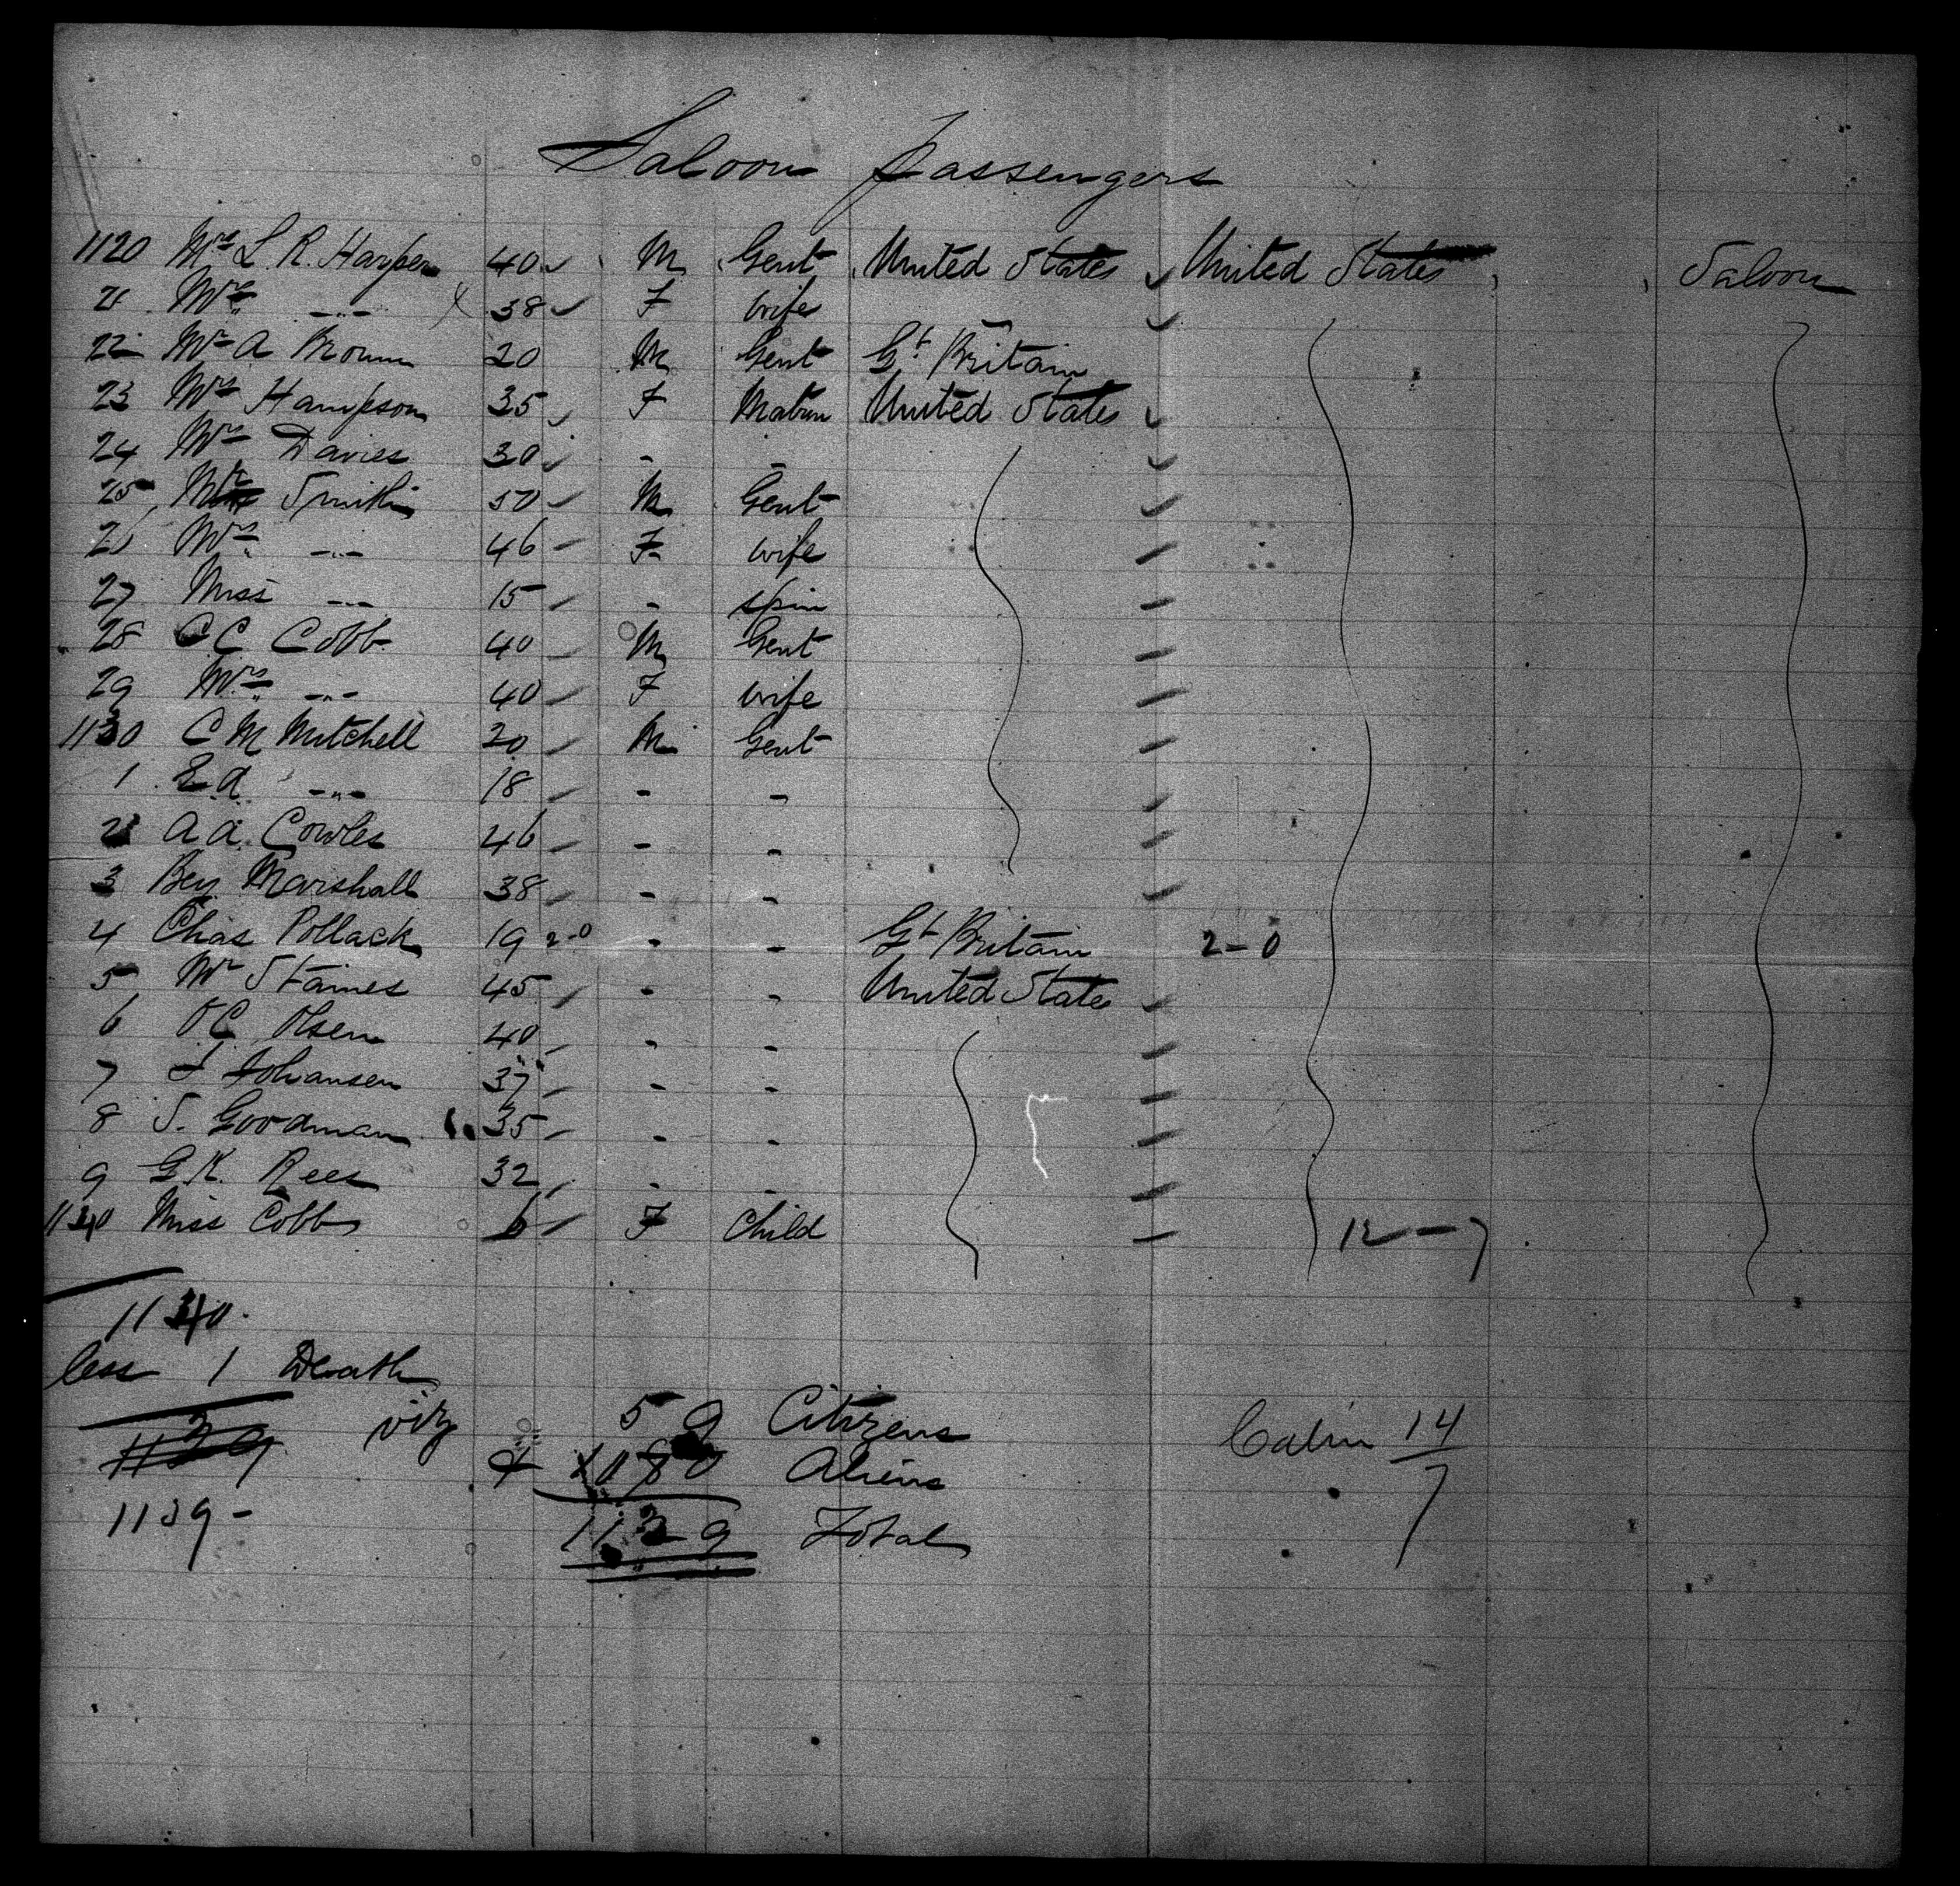 Saloon passengers
1120 Mr L. R. Harper 40 M Gent United States United States Saloon
21 Mrs -"- 38 F wife
22 Mr A Brown 20 M Gent Gt Britain
23 Mrs Hampson 35 F Matron United States
24 Mrs Davies 30 - -
25 Mr Smith 50 M Gent
26 Mrs -"- 46 F wife
27 Miss -"- 15 - spin
28 C C Cobb 40 M Gent
29 Mrs -"- 40 F wife
1130 C M Mitchell 20 M Gent
1 E A -"- 18 - -
2 A A Cowles 46 - -
3 Benj Marshall 38 - -
4 Chas Pollack 19 2-0 - - Gt Britain 2-0
5 Mr Staines 45 - - United States
6 O C Olsen 40 - -
7 J Johansen 37 - -
8 S. Goodman 35 - -
9 G. K. Rees 32 - -
1140 Miss Cobb 6 F Child 12-7
1140
less 1 Death
1139 viz 59 Citizens Cabin 14
& 1080 Aliens 7
1139 - 1139 Total